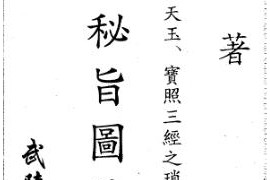 著
天玉、寶照三經之瑣
秘旨圖
武